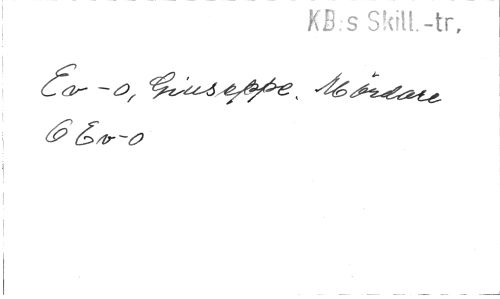 KB:s Skill.-tr.
Ev-o, Giuseppe. Mördare
6 Ev-o